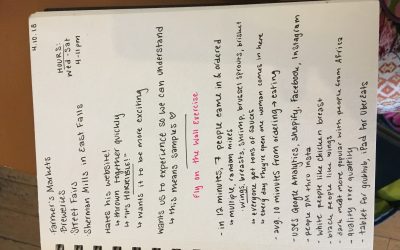 4.10.18
HOURS:
Wed-Sat
4-11pm
Farmer's Markets
Breweries
Street Fairs
Sherman Mills in East Falls
Hates his website!
↳ threw it together quickly
↳ "it's HORRIBLE!"
↳ wants it to be more exciting
wants us to experience so we can understand
↳ this means samples
Fly on the Wall Exercise
- in 12 minutes, 7 people came in & ordered
↳ multiple, random mixes
↳ wings, breasts, shrimp, brussel sprouts, brisket
↳ everyone got tons of sauces
↳ every day they're open one woman comes in here
- avg 10 minutes from ordering → eating
- uses Google Analytics, Shopify, Facebook, Instagram
- people DM thru insta
- white people like chicken breast
- black people like wings
- dark meat more popular with people from Africa
- quality over quantity
- tablet for grubhub, iPad for UberEats